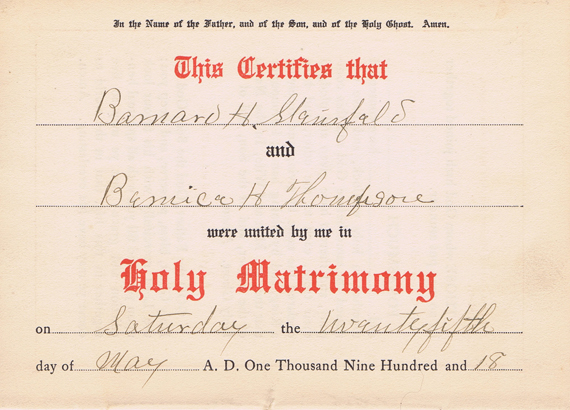 In the Name of the Father, and of the Son, and of the Holy Ghost. Amen.
This Certifies that
Barnard H.
and
Bernica H Thompson
were united by me in
Holy Matrimony
on Saturday the twentyfifth
day of May A. D. One Thousand Nine Hundred and 18